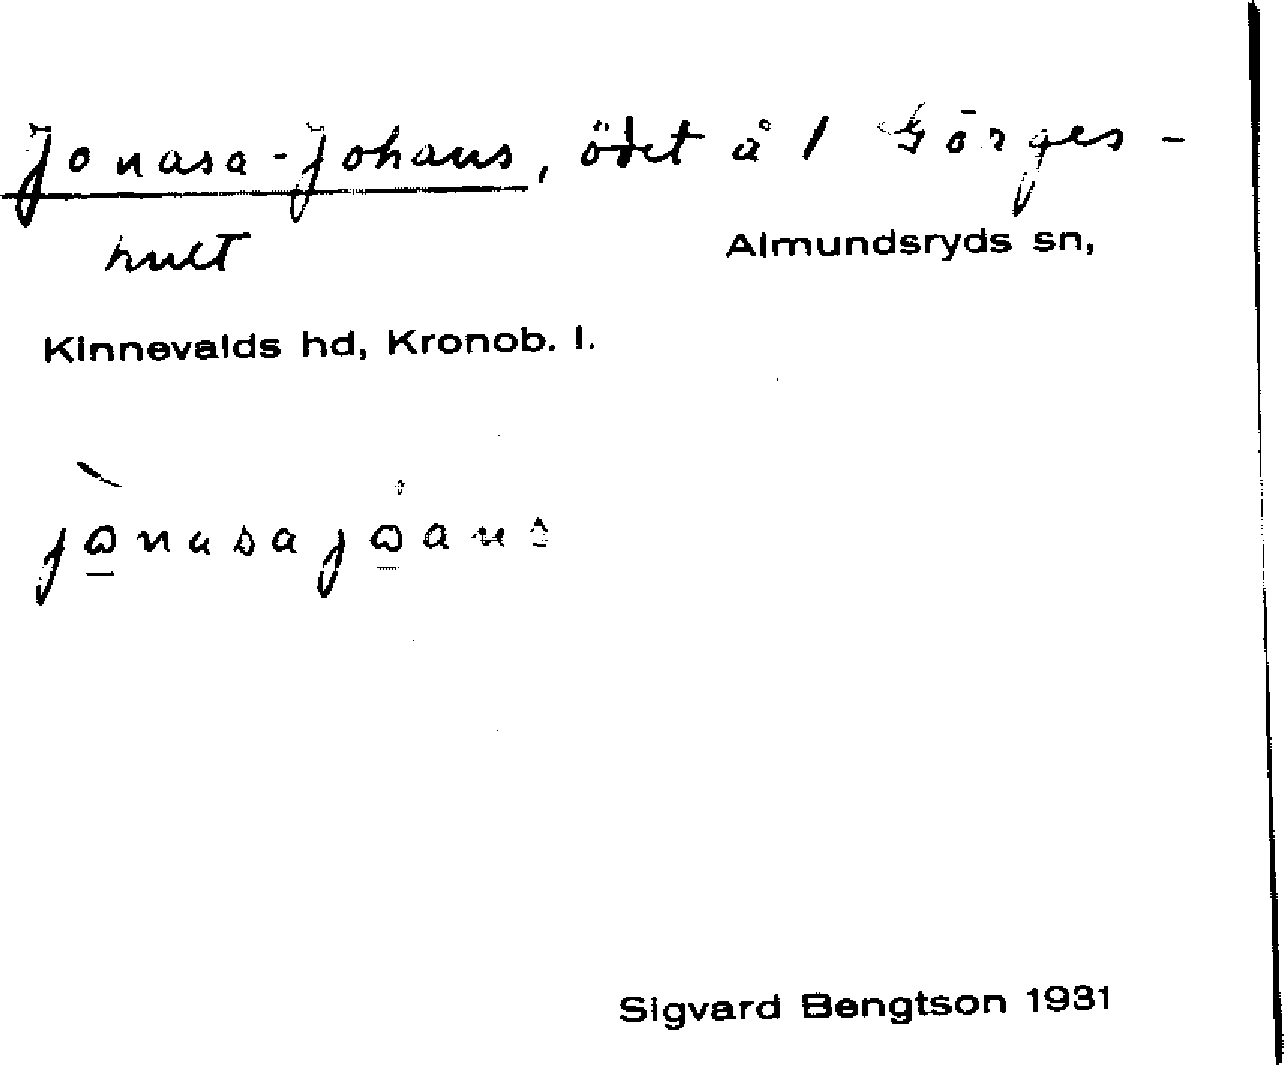 Jonasa-Johans, ödet å 1 Görges-
hult
Almundsryds sn,
Kinnevalds hd, Kronob. l.
Sigvard Bengtson 1931